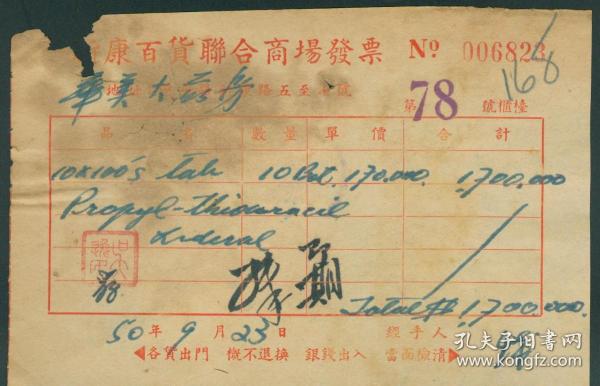 康百貨聯合商場發票 Nº 006823
168
華英大藥房
地址 路五至 號
第78號櫃檯
品 名 數量 單價 合計
10x100's tab 10 Bot. 170,000. 1,700,000
Propyl-thiouracil
Lederal
Total # 1,700,000.
50年9月23日 經手人
◀各貨出門 概不退換 銀錢出入 當面檢清▶
孔夫子旧书网
kongfz.com